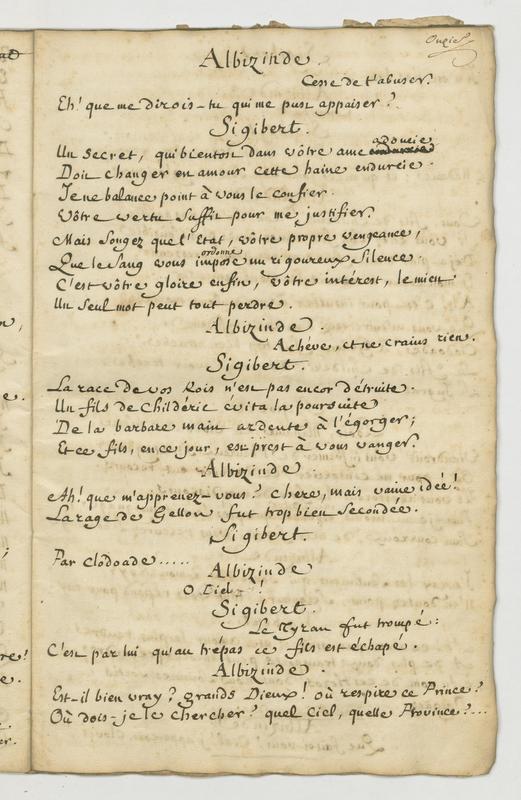 Albizinde.
Cesse de t'abuser.
Eh! que me dirois-tu qui me pust appaiser?
Sigibert.
Un Secret, qui bientost dans vôtre ame adoucie
Doit changer en amour cette haine endurcie.
Je ne balance point à vous le confier.
Vôtre vertu suffit pour me justifier.
Mais songez que l'Etat, vôtre propre vengeance,
ordonne
Que le sang vous impose un rigoureux Silence.
C'est vôtre gloire enfin, vôtre intérest, le mien
Un seul mot peut tout perdre.
Albizinde.
Achéve, et ne crains rien.
Sigibert.
La race de vos Rois n'est pas encor détruite.
Un fils de Childéric évita la poursuite
De la barbare main ardente à l'égorger;
Et ce fils, en ce jour, est prest à vous vanger.
Albizinde.
Ah! que m'apprenez-vous? chere, mais vaine idée!
La rage de Gellon fut trop bien secondée.
Sigibert.
Par Clodoade.....
Albizinde.
O Ciel!
Sigibert.
Le Tyran fut trompé:
C'est par lui qu'au trépas ce fils est échapé.
Albizinde.
Est-il bien vray? grands Dieux! où respire ce Prince?
Où dois-je le chercher? quel Ciel, quelle Province?...